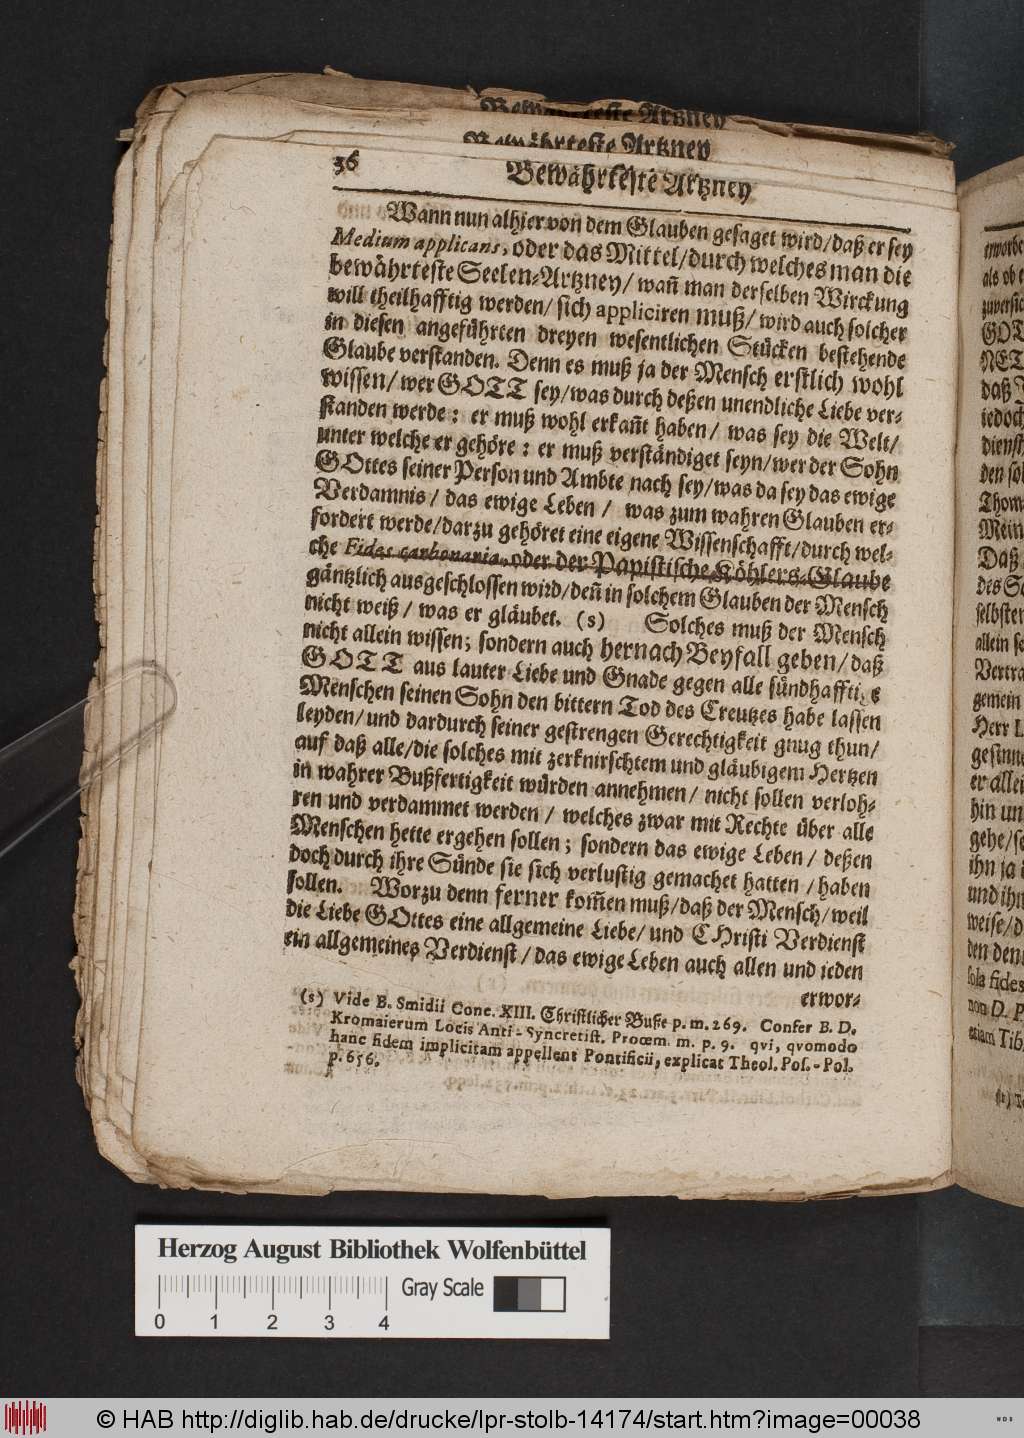 Bewährteste Artzney
Bewährteste Artzney
36
Bewährteste Artzney
Wann nun alhier von dem Glauben gesaget wird/daß er sey
Medium applicans, oder das Mittel/durch welches man die
bewährteste Seelen-Artzney/ wañ man derselben Wirckung
will theilhafftig werden/ sich appliciren muß/ wird auch solcher
in diesen angeführten dreyen wesentlichen Stücken bestehende
Glaube verstanden. Denn es muß ja der Mensch erstlich wohl
wissen/ wer GOTT sey/was durch deßen unendliche Liebe ver-
standen werde: er muß wohl erkañt haben/ was sey die Welt/
unter welche er gehöre: er muß verständiget seyn/wer der Sohn
GOttes seiner Person und Ambte nach sey/was da sey das ewige
Verdamnis/ das ewige Leben/ was zum wahren Glauben er-
fordert werde/darzu gehöret eine eigene Wissenschafft/durch wel-
che Fides carbonaria, oder der Papistische Köhlers-Glaube
gäntzlich ausgeschlossen wird/deñ in solchem Glauben der Mensch
nicht weiß/ was er gläubet. (s) Solches muß der Mensch
nicht allein wissen; sondern auch hernach Beyfall geben/ daß
GOTT aus lauter Liebe und Gnade gegen alle sündhafftige
Menschen seinen Sohn den bittern Tod des Creutzes habe lassen
leyden/ und dardurch seiner gestrengen Gerechtigkeit gnug thun/
auf daß alle/die solches mit zerknirschtem und gläubigem Hertzen
in wahrer Bußfertigkeit würden annehmen/ nicht sollen verloh-
ren und verdammet werden/ welches zwar mit Rechte über alle
Menschen hette ergehen sollen; sondern das ewige Leben/ deßen
doch durch ihre Sünde sie sich verlustig gemachet hatten/ haben
sollen. Worzu denn ferner kom̃en muß/daß der Mensch/weil
die Liebe GOttes eine allgemeine Liebe/ und CHristi Verdienst
ein allgemeines Verdienst/das ewige Leben auch allen und jeden
erwor-
(s) Vide B. Smidii Conc. XIII. Christlicher Buße p. m. 269. Confer B. D.
Kromaierum Locis Anti-Syncretist. Prooem. m. p. 9. qvi, qvomodo
hanc fidem implicitam appellent Pontificii, explicat Theol. Pos.-Pol.
p. 656.
erworbe
als ob e
GOT
NET
daß
jedoch
dienst
den so
Thom
Mein
Daß
des S
selbsten
allein se
Vertra
gemein
Herr L
gesinne
er allei
hin un
gehe/se
ihn ja
und ihn
weise/d
den den
sola fides
non D. P
etiam Tib
Herzog August Bibliothek Wolfenbüttel
Gray Scale
0 1 2 3 4
© HAB http://diglib.hab.de/drucke/lpr-stolb-14174/start.htm?image=00038